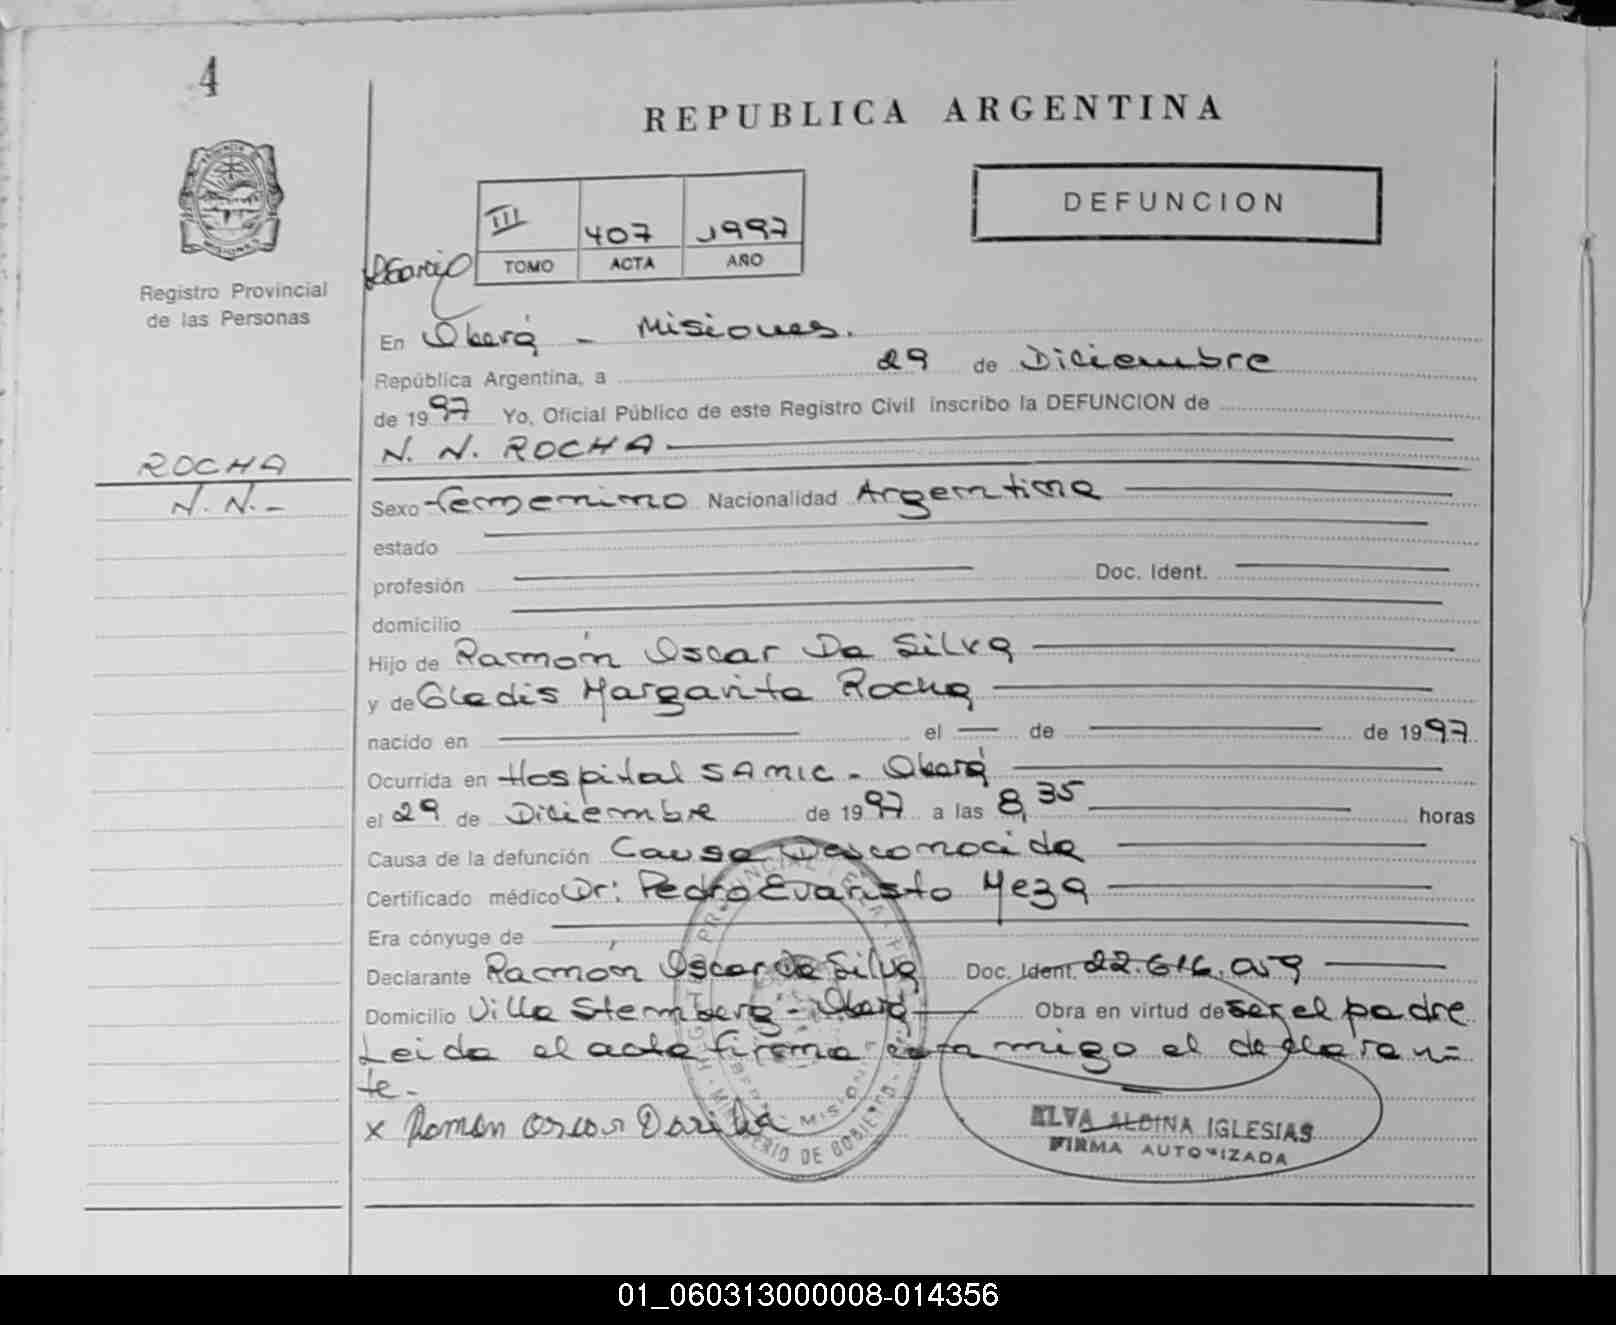 4
REPUBLICA ARGENTINA
DEFUNCION
III 407 1997
TOMO ACTA AÑO
Registro Provincial
de las Personas
En Oberá - Misiones.
República Argentina, a 29 de Diciembre
de 1997 Yo, Oficial Público de este Registro Civil inscribo la DEFUNCION de
ROCHA
N. N.-
N. N. ROCHA
Sexo femenino Nacionalidad Argentina
estado
profesión Doc. Ident.
domicilio
Hijo de Ramón Oscar Da Silva
y de Gladis Margarita Rocha
nacido en el de de 1997
Ocurrida en Hospital SAMIC - Oberá
el 29 de Diciembre de 1997 a las 8,35 horas
Causa de la defunción Causa Desconocida
Certificado médico Dr: Pedro Evaristo Meza
Era cónyuge de
Declarante Ramón Oscar Da Silva Doc. Ident. 22.616.059
Domicilio Villa Stemberg - Oberá Obra en virtud de ser el padre
Leida el acta firma conmigo el declaran=
te.-
x Ramon Oscar Dasilva
ELVA ALDINA IGLESIAS
FIRMA AUTORIZADA
MINISTERIO DE GOBIERNO
01_060313000008-014356